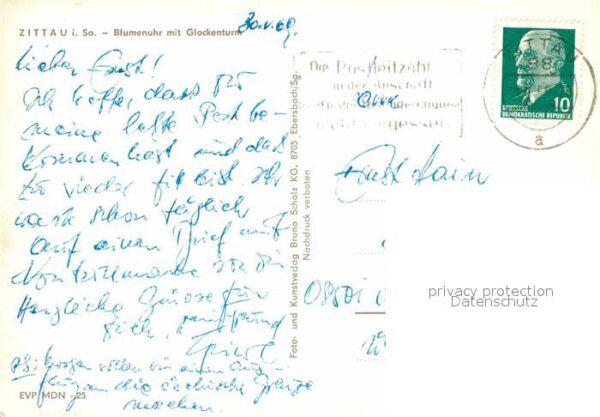 ZITTAU i. Sa. – Blumenuhr mit Glockenturm
30.V.69.
Lieber Ernst!
Ich hoffe, dass Du
meine letzte Post be-
kommen hast und dass
Du wieder fit bist. Ich
warte schon täglich
auf einen Brief mit
von Dir
Herzliche Grüsse für
Dich,
PS: Morgen wollen wir einen Aus-
flug an die cechische Grenze
machen.
EVP MDN -25
Foto- und Kunstverlag Bruno Scholz KG, 8705 Ebersbach/Sa.
Nachdruck verboten
Die Postleitzahl
in der Anschrift
ZITTAU
88
a
10
DEUTSCHE
DEMOKRATISCHE REPUBLIK
Ernst
privacy protection
Datenschutz